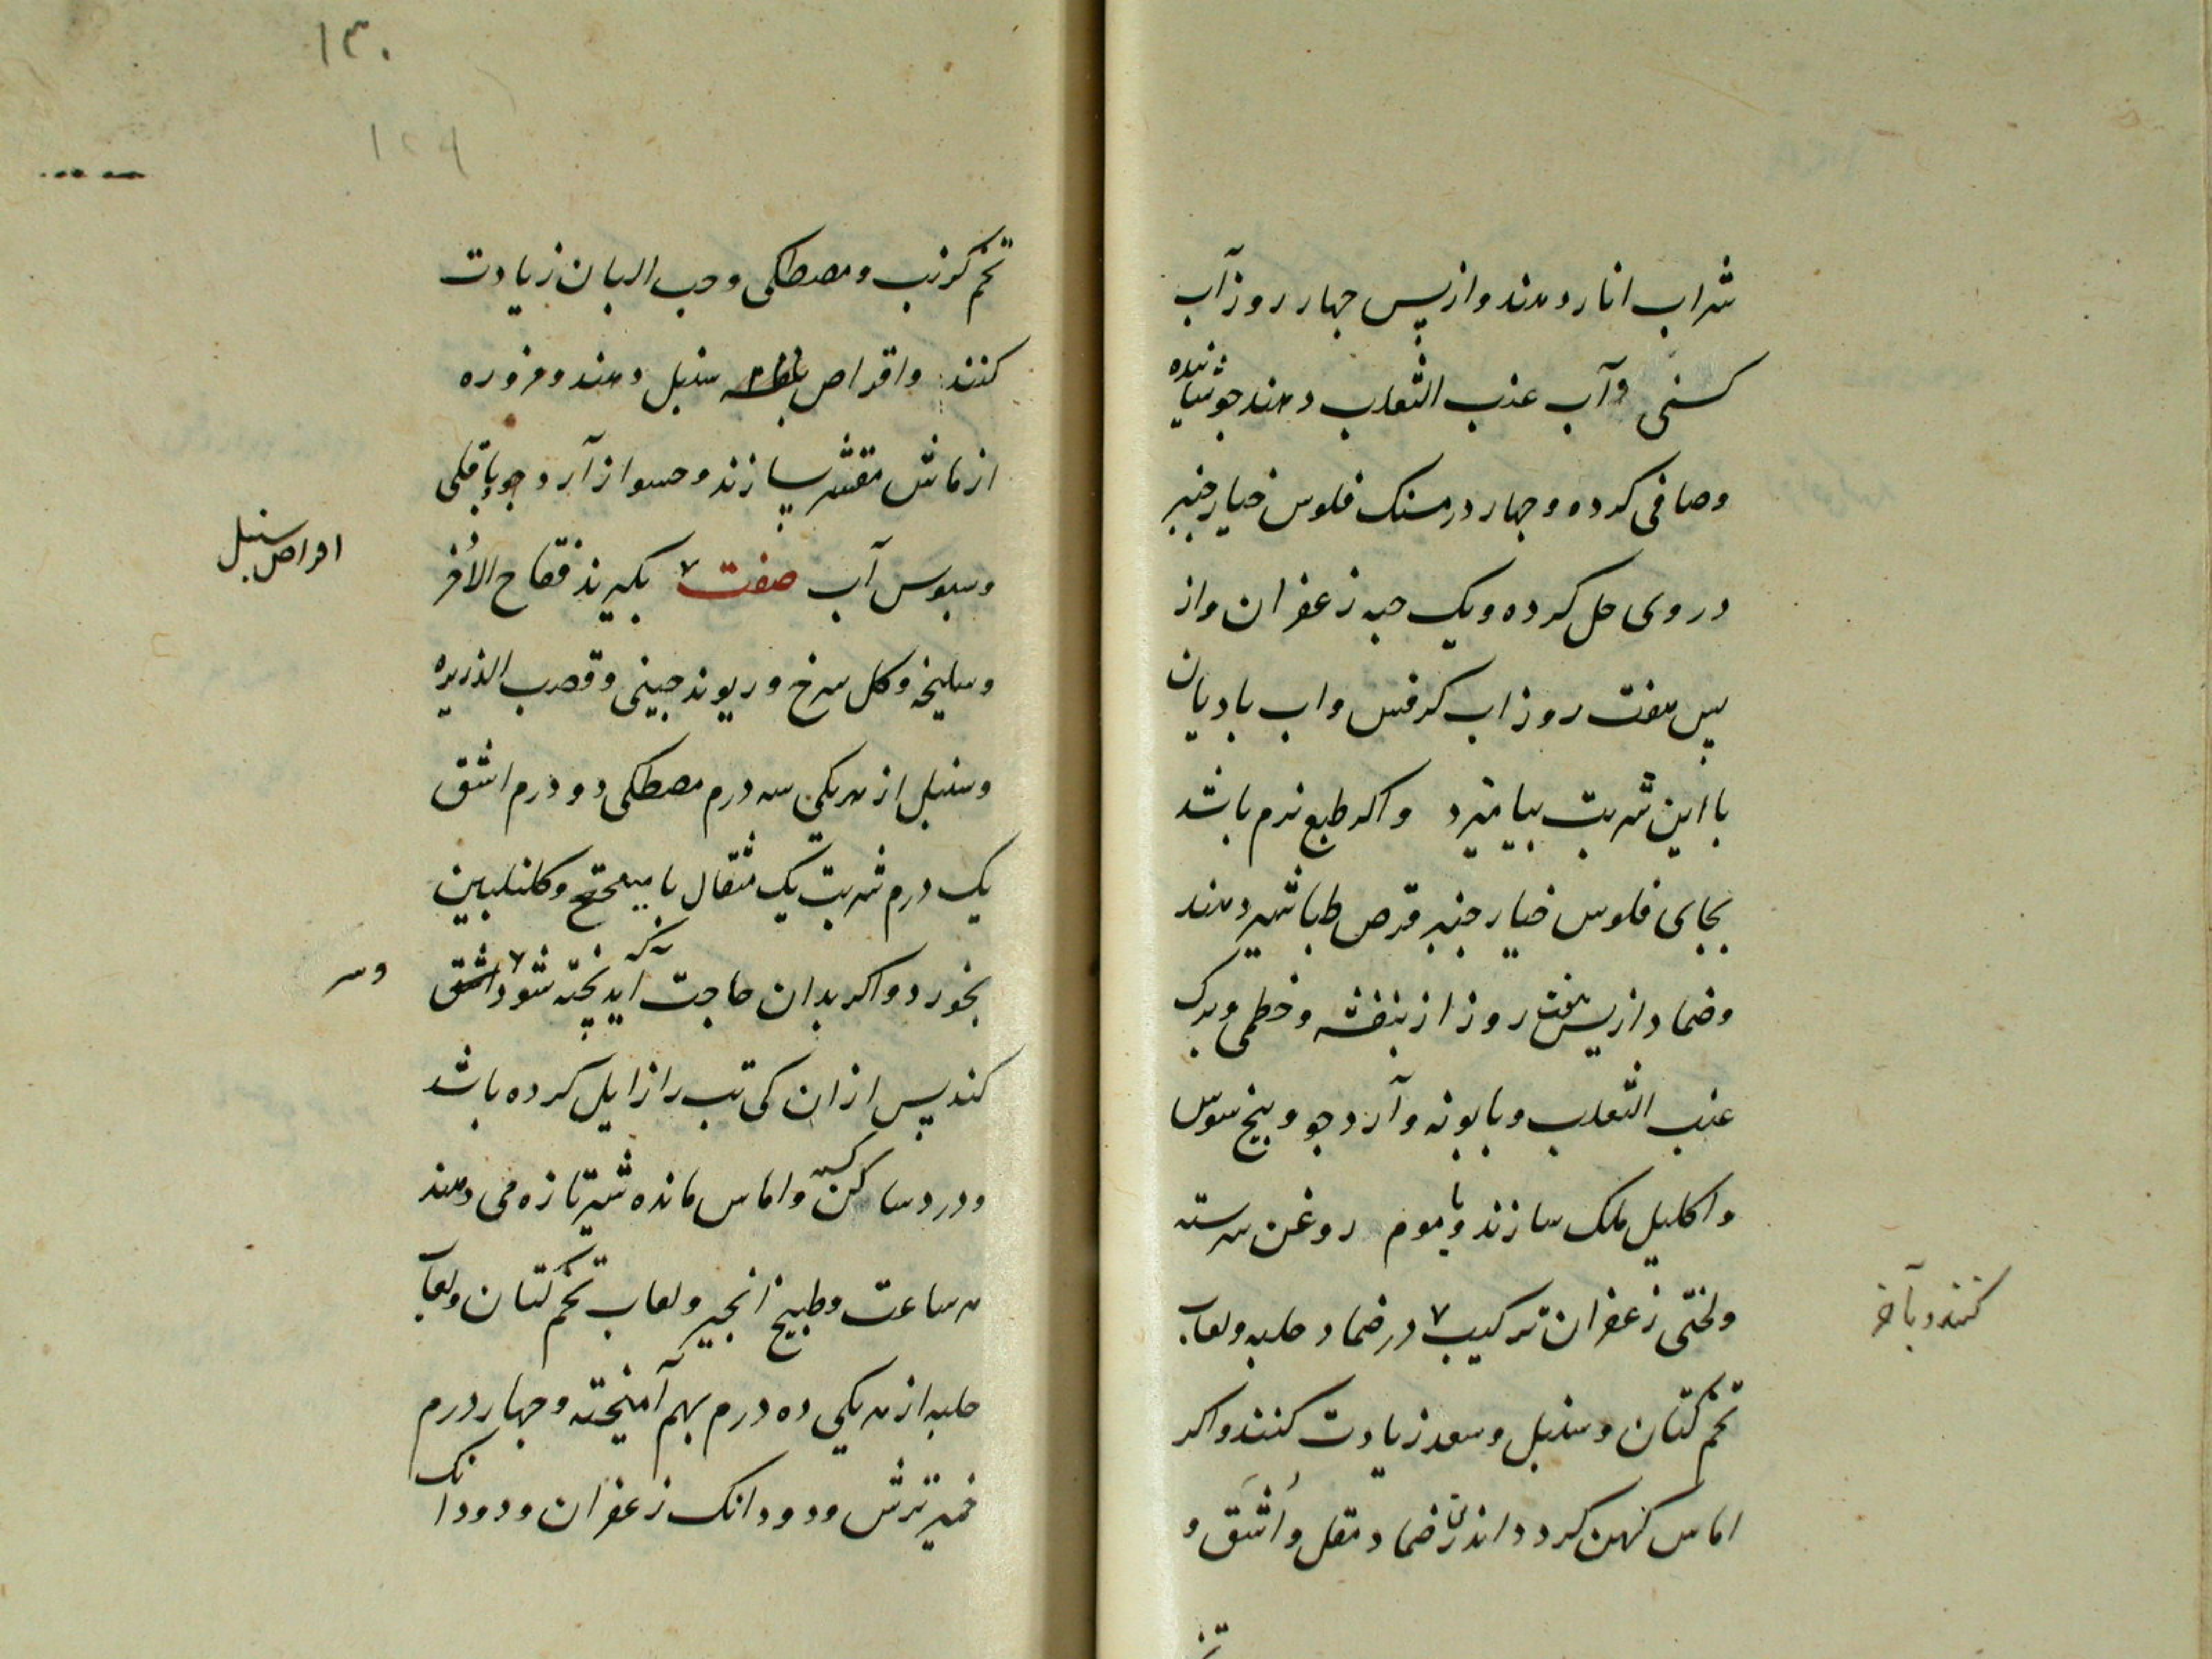 شراب انار دهند و از پس چهار روز آب
کسنی و آب عنب الثعلب دهند جوشانیده
و صافی کرده و چهار درمسنک فلوس خیار چنبر
در وی حل کرده و یک حبه زعفران و از
پس هفت روز اب کرفس و اب بادیان
با این شربت بیامیزد و اکر طبع نرم باشد
بجای فلوس خیار چنبر قرص طباشیر دهند
و ضماد از پس هفت روز از بنفشه و خطمی و برک
عنب الثعلب و بابونه و آرد جو و بیخ سوس
و اکلیل ملک سازند و با موم روغن سرشته
کنند و بآخر
و لختی زعفران ترکیب ٧ در ضماد حلبه و لعاب
تخم کتان و سنبل و سعد زیادت کنند و اکر
اماس کهن کردد اندرین ضماد مقل و اُشَق و
١٣٠
١٢٩
تخم کرنب و مصطکی و حب البان زیادت
کنند و اقراص سنبل دهند و مزوره
از ماش مقشر سازند و حسو از آرد جو باقلی
و سبوس آب صفت ٧ بکیرند فقاح الاُذخر
اقراص سنبل
و سلیخه و کل سرخ و ریوند چینی و قصب الذریره
و سنبل از هر یکی سه درم مصطکی دو درم اشق
یک درم شربت یک مثقال با میبختج و کلنکبین
بخورد و اکر بدان حاجت اید که پخته شود ٧
وسر
کند پس از ان کی تب را زایل کرده باشد
و درد ساکن و اماس مانده شیر تازه می دهند
هر ساعت و طبیخ انجیر و لعاب تخم کتان و لعاب
حلبه از هر یکی ده درم بهم آمیخته و چهار درم
خمیر ترش و دو دانک زعفران و دو دانک